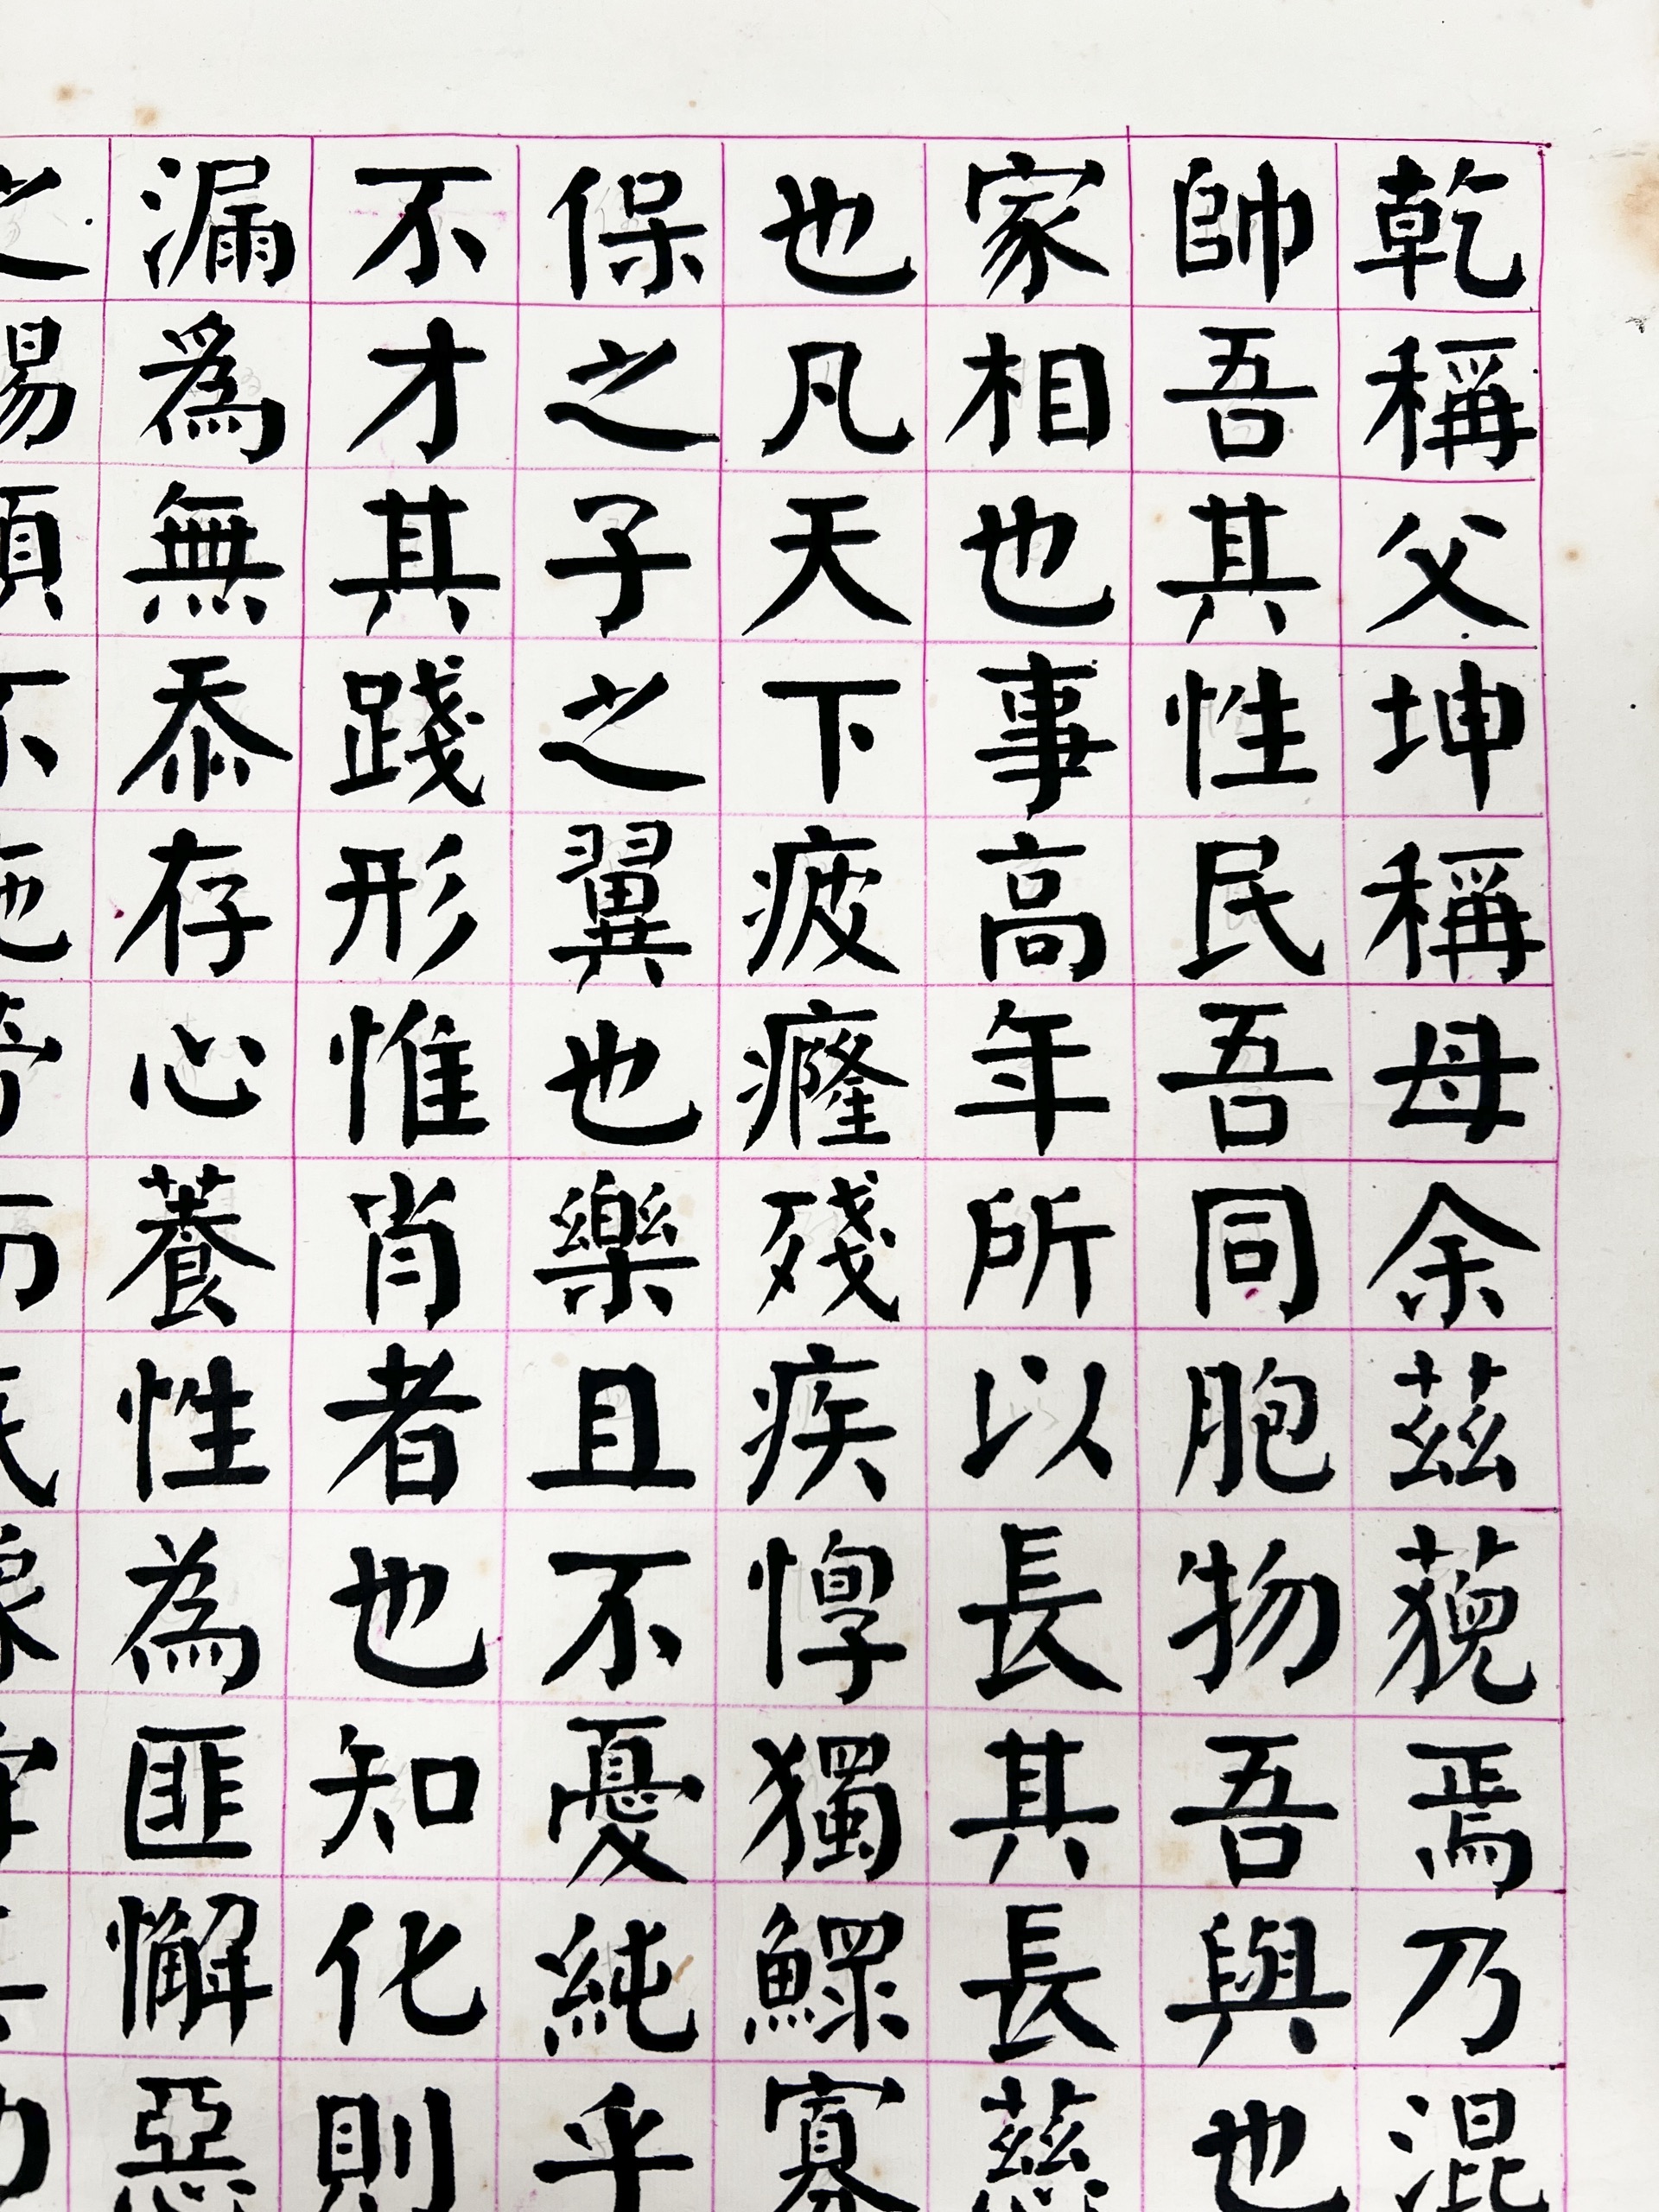 乾稱父坤稱母余茲藐焉乃混
帥吾其性民吾同胞物吾與也
家相也事高年所以長其長慈
也凡天下疲癃殘疾惸獨鰥寡
保之子之翼也樂且不憂純乎
不才其踐形惟肖者也知化則
漏爲無忝存心養性為匪懈惡
之錫